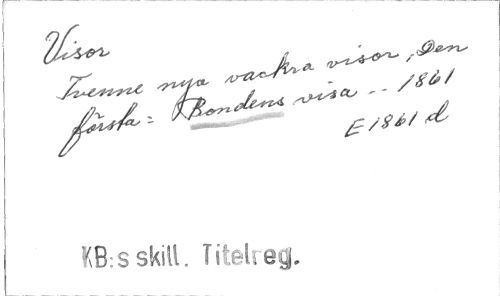 Visor
Tvenne nya vackra visor, Den
första: Bondens visa -- 1861
E1861 d
KB:s skill. Titelreg.